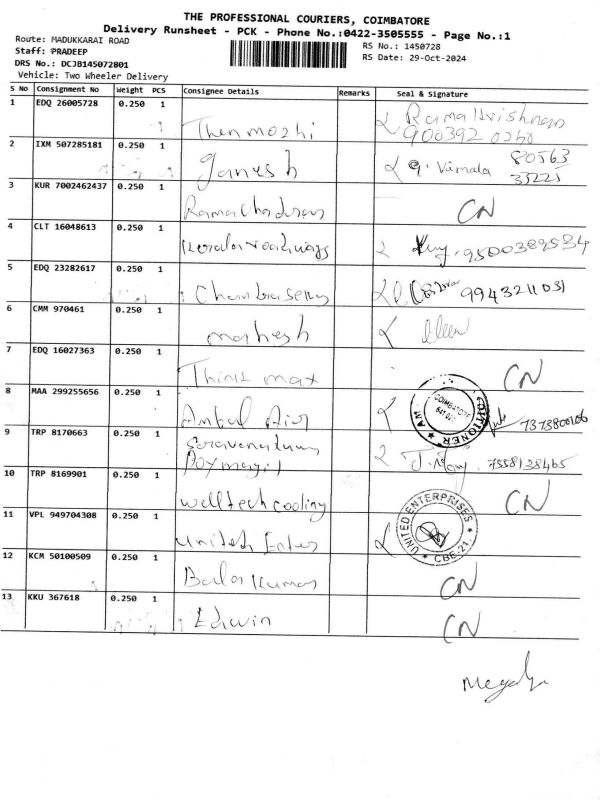 THE PROFESSIONAL COURIERS, COIMBATORE
Delivery Runsheet - PCK - Phone No.:0422-3505555 - Page No.:1
Route: MADUKKARAI ROAD
RS No.: 1450728
Staff: PRADEEP
RS Date: 29-Oct-2024
DRS No.: DCJB145072801
Vehicle: Two Wheeler Delivery
S No Consignment No Weight PCS Consignee Details Remarks Seal & Signature
1 EDQ 26005728 0.250 1 Thenmozhi Ramakrishnan
2 IXM 507285181 0.250 1 Ganesh G. Vimala 80563
33225
3 KUR 7002462437 0.250 1 Ramachadran CN
4 CLT 16048613 0.250 1 Kerala roadways 9500389534
5 EDQ 23282617 0.250 1 9943211031
6 CMM 970461 0.250 1 mahesh
7 EDQ 16027363 0.250 1 Think max CN
8 MAA 299255656 0.250 1 Ambal Air COIMBATORE 7373800106
9 TRP 8170663 0.250 1 7558138465
10 TRP 8169901 0.250 1 welltech cooling CN
11 VPL 949704308 0.250 1 United Enter UNITED ENTERPRISES
★ CBE-21 ★
12 KCM 50100509 0.250 1 Bala Kumar CN
13 KKU 367618 0.250 1 Edwin CN